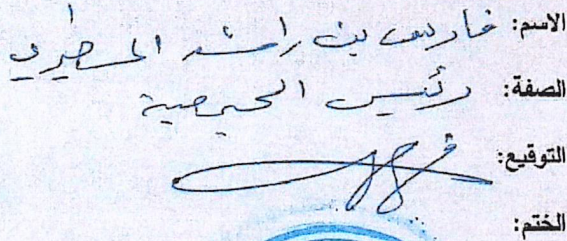 الاسم: فارس بن راشد المطيري
الصفة: رئيس الجمعية
التوقيع:
الختم: